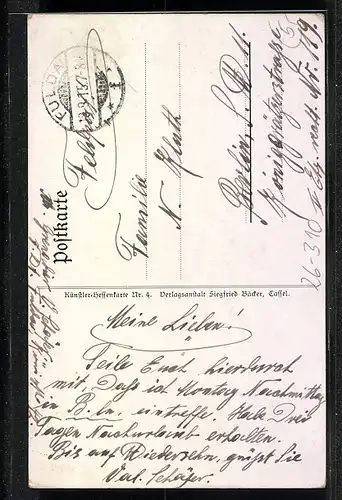 FULDA
Feldpost
Postkarte
Familie
N. Kluth
Berlin S. W.
Königgrätzerstraße
Nr. 119
26-310
Künstler-Hessenkarte Nr. 4. Verlagsanstalt Siegfried Bäcker, Cassel.
Meine Lieben!
Teile Euch hierdurch
mit, daß ich Montag Nachmittag
in B.ln. eintreffe. Habe Drei
Tagen Nachurlaub erhalten.
Bis auf Wiedersehn, grüßt Sie
Val. Schäfer.